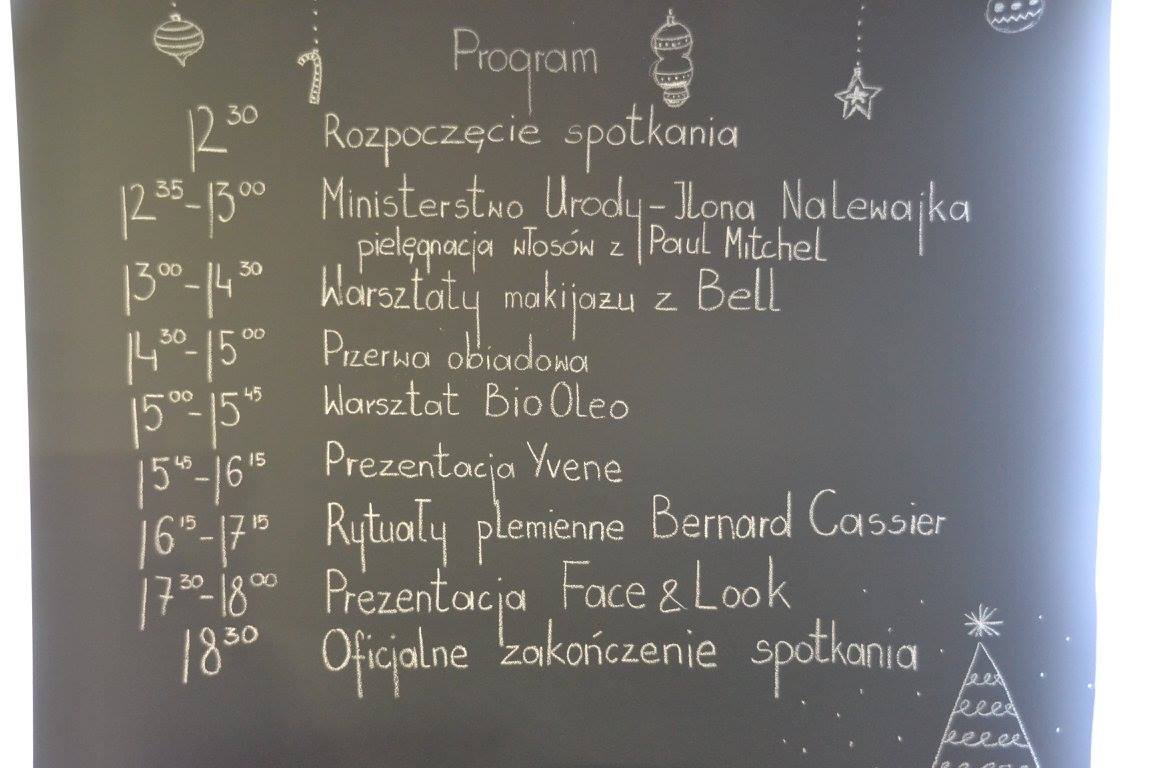 Program
12 30 Rozpoczęcie spotkania
12 35 - 13 00 Ministerstwo Urody - Ilona Nalewajka
pielęgnacja włosów z Paul Mitchel
13 00 - 14 30 Warsztaty makijażu z Bell
14 30 - 15 00 Przerwa obiadowa
15 00 - 15 45 Warsztat BioOleo
15 45 - 16 15 Prezentacja Yvene
16 15 - 17 15 Rytuały plemienne Bernard Cassier
17 30 - 18 00 Prezentacja Face & Look
18 30 Oficjalne zakończenie spotkania